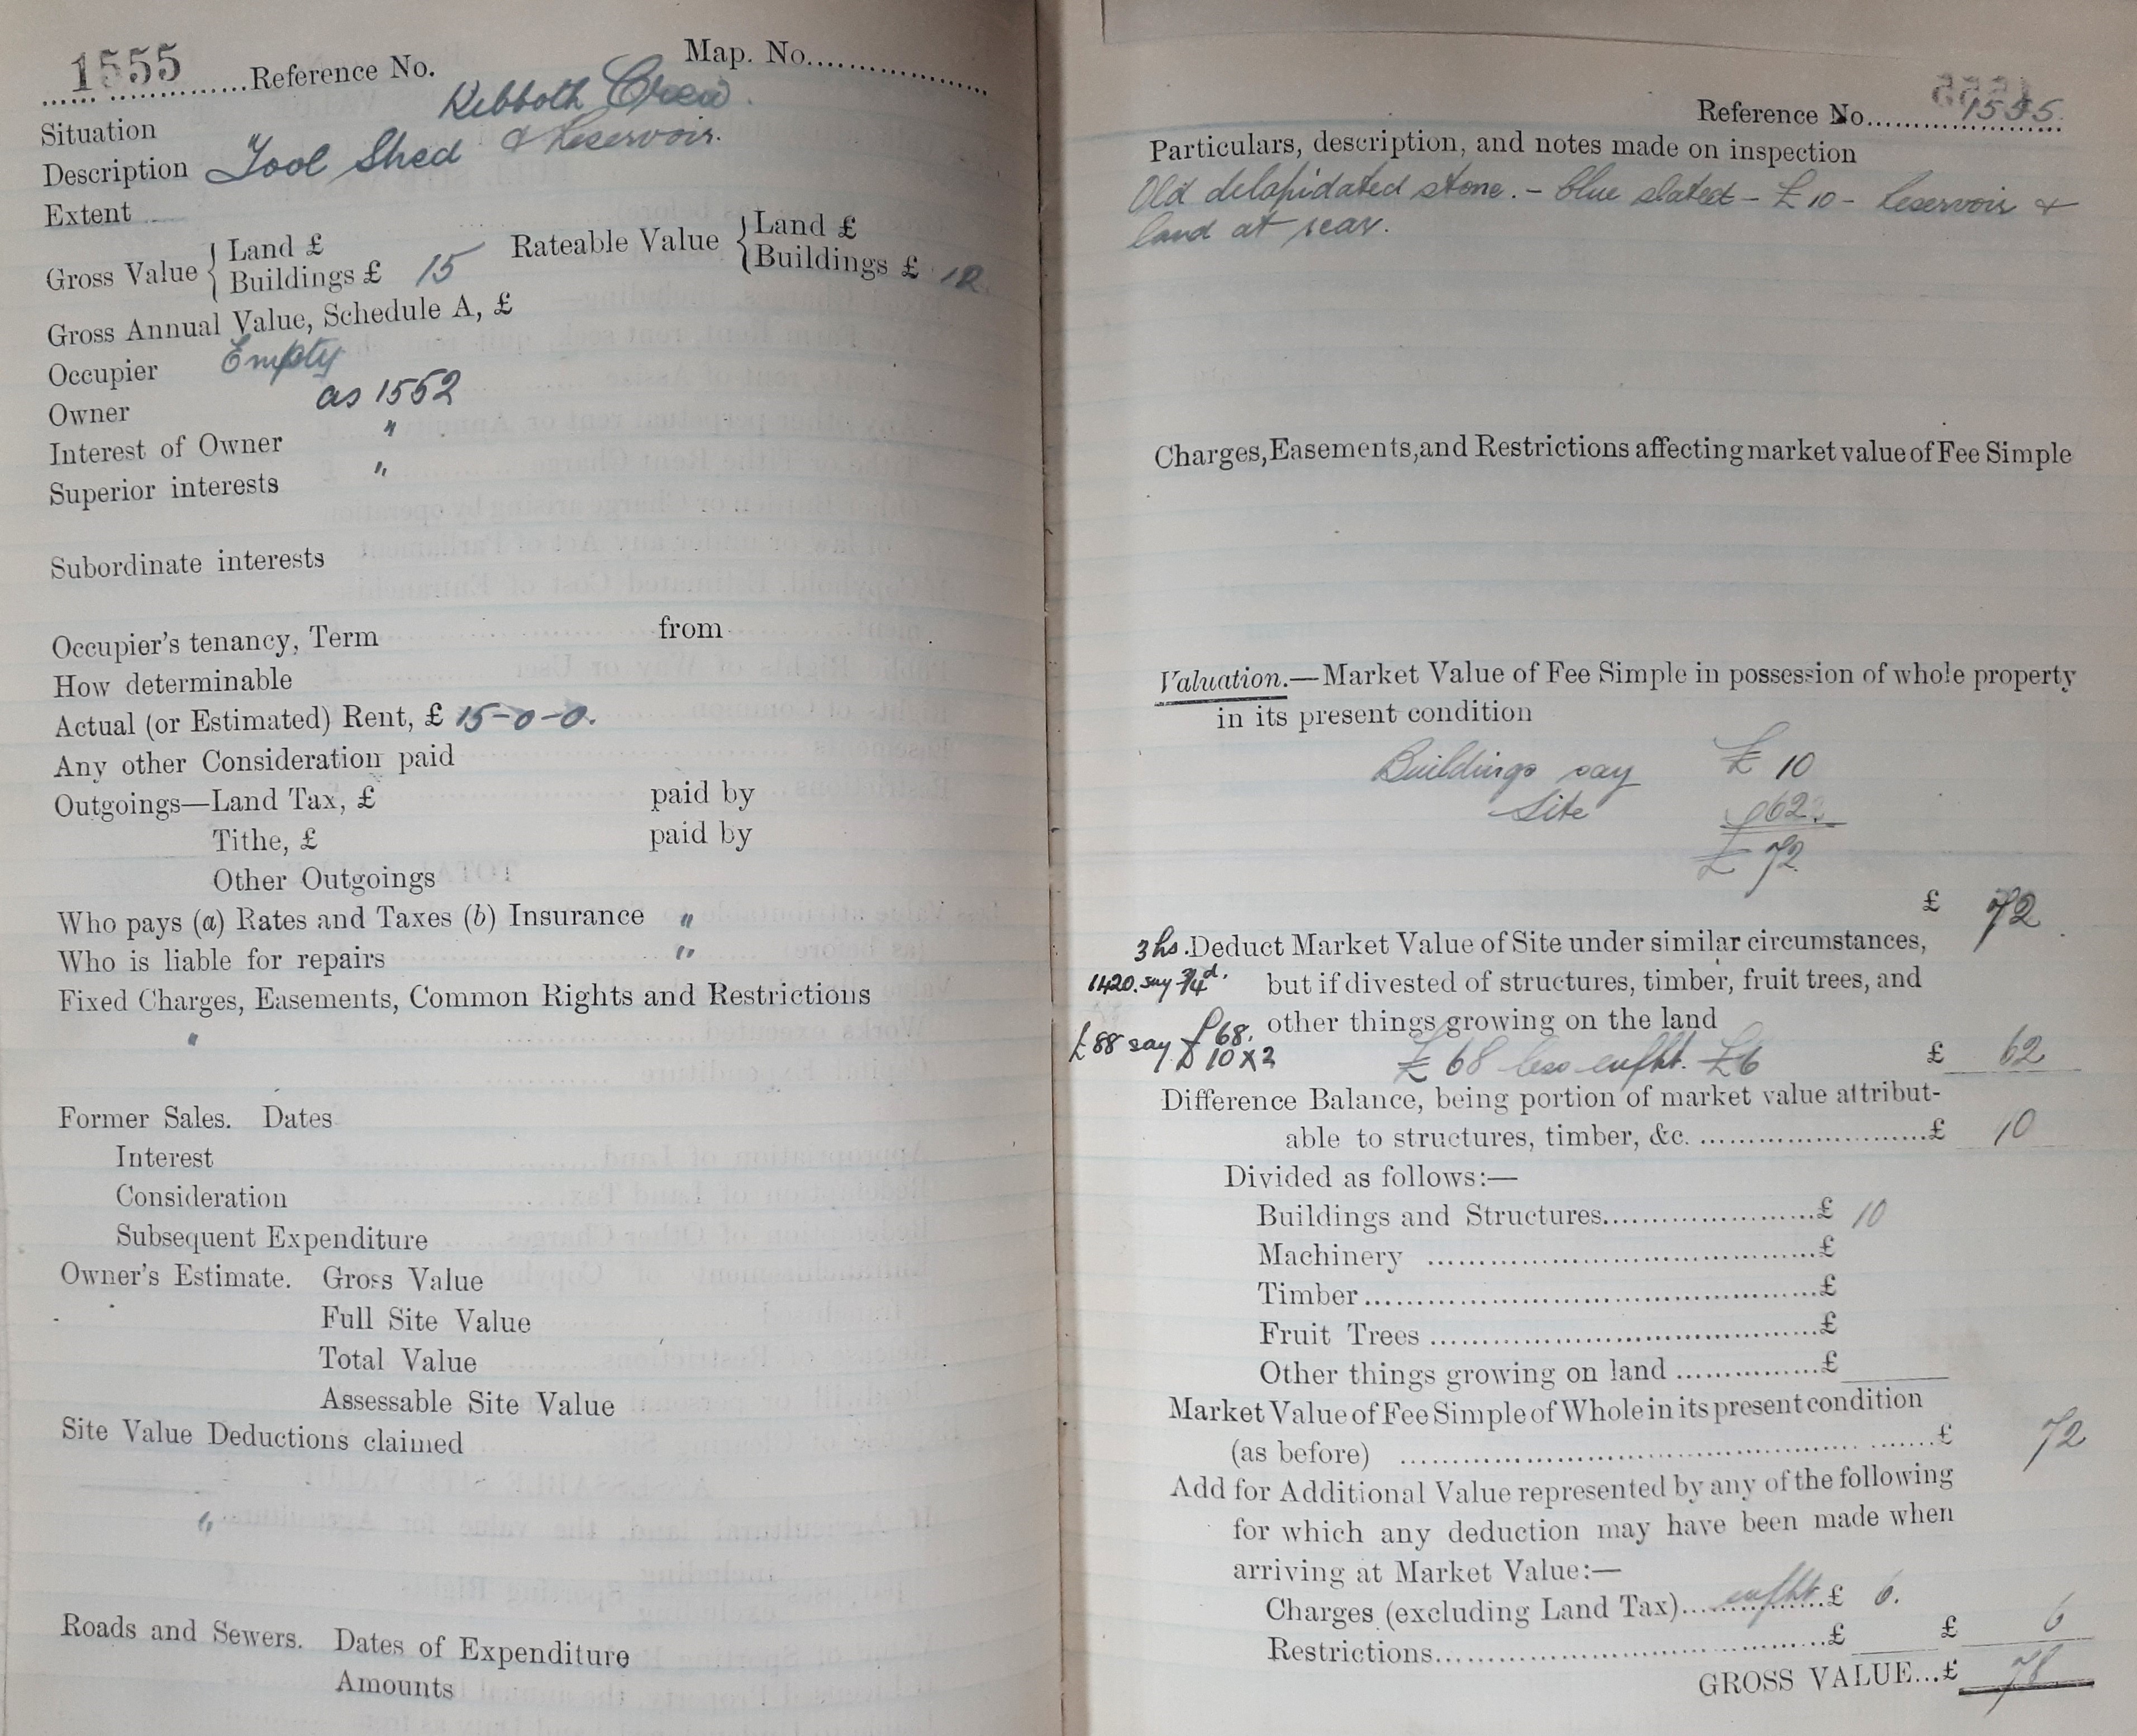 1555 Reference No. Map. No.
Situation Kibboth Crew.
Description Tool Shed & Reservoir.
Extent
Gross Value { Land £ Rateable Value { Land £
Buildings £ 15 Buildings £ 12.
Gross Annual Value, Schedule A, £
Occupier Empty
Owner as 1552
Interest of Owner "
Superior interests "
Subordinate interests
Occupier's tenancy, Term from
How determinable
Actual (or Estimated) Rent, £ 15-0-0.
Any other Consideration paid
Outgoings—Land Tax, £ paid by
Tithe, £ paid by
Other Outgoings
Who pays (a) Rates and Taxes (b) Insurance "
Who is liable for repairs "
Fixed Charges, Easements, Common Rights and Restrictions
"
Former Sales. Dates
Interest
Consideration
Subsequent Expenditure
Owner's Estimate. Gross Value
Full Site Value
Total Value
Assessable Site Value
Site Value Deductions claimed
"
Roads and Sewers. Dates of Expenditure
Amounts
Reference No. 1555.
Particulars, description, and notes made on inspection
Old delapidated stone. - blue slated - £10 - Reservoir &
land at rear.
Charges, Easements, and Restrictions affecting market value of Fee Simple
Valuation.—Market Value of Fee Simple in possession of whole property
in its present condition
Buildings say £ 10
Site 62
£ 72
£ 72
3 hs. Deduct Market Value of Site under similar circumstances,
1420. say 3/4d. but if divested of structures, timber, fruit trees, and
£88 say £68. other things growing on the land
10 x 2 £ 68 less enfht. £6 £ 62
Difference Balance, being portion of market value attribut-
able to structures, timber, &c. £ 10
Divided as follows:—
Buildings and Structures £ 10
Machinery £
Timber £
Fruit Trees £
Other things growing on land £
Market Value of Fee Simple of Whole in its present condition
(as before) £ 72
Add for Additional Value represented by any of the following
for which any deduction may have been made when
arriving at Market Value:—
Charges (excluding Land Tax) enfht. £ 6.
Restrictions £ £ 6
GROSS VALUE...£ 78